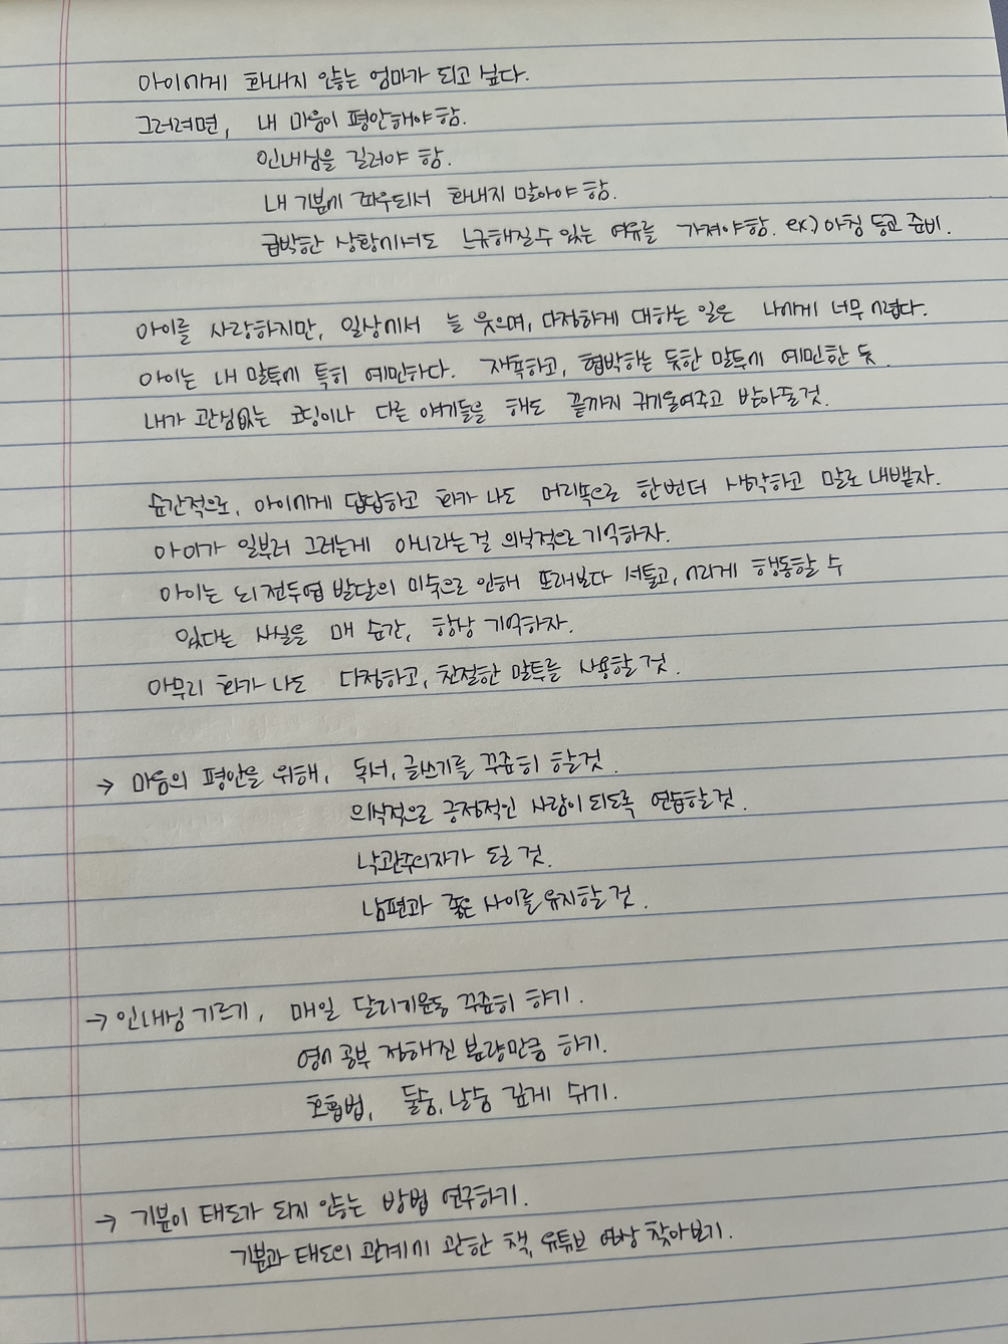 아이에게 화내지 않는 엄마가 되고 싶다.
그러려면, 내 마음이 평안해야 함.
인내심을 길러야 함.
내 기분에 좌우되서 화내지 말아야 함.
급박한 상황에서도 느긋해질 수 있는 여유를 가져야 함. ex.) 아침 등교 준비.
아이를 사랑하지만, 일상에서 늘 웃으며, 다정하게 대하는 일은 나에게 너무 어렵다.
아이는 내 말투에 특히 예민하다. 재촉하고, 협박하는 듯한 말투에 예민한 듯.
내가 관심없는 코딩이나 다른 얘기들을 해도 끝까지 귀기울여주고 받아줄것.
순간적으로, 아이에게 답답하고 화가 나도 머리속으로 한번더 생각하고 말로 내뱉자.
아이가 일부러 그러는게 아니라는걸 의식적으로 기억하자.
아이는 뇌 전두엽 발달의 미숙으로 인해 또래보다 서툴고, 어리게 행동할 수
있다는 사실을 매 순간, 항상 기억하자.
아무리 화가 나도 다정하고, 친절한 말투를 사용할 것.
→ 마음의 평안을 위해, 독서, 글쓰기를 꾸준히 할것.
의식적으로 긍정적인 사람이 되도록 연습할 것.
낙관주의자가 될 것.
남편과 좋은 사이를 유지할 것.
→ 인내심 기르기, 매일 달리기운동 꾸준히 하기.
영어 공부 정해진 분량만큼 하기.
호흡법, 들숨, 날숨 깊게 쉬기.
→ 기분이 태도가 되지 않는 방법 연구하기.
기분과 태도의 관계에 관한 책, 유튜브 영상 찾아보기.